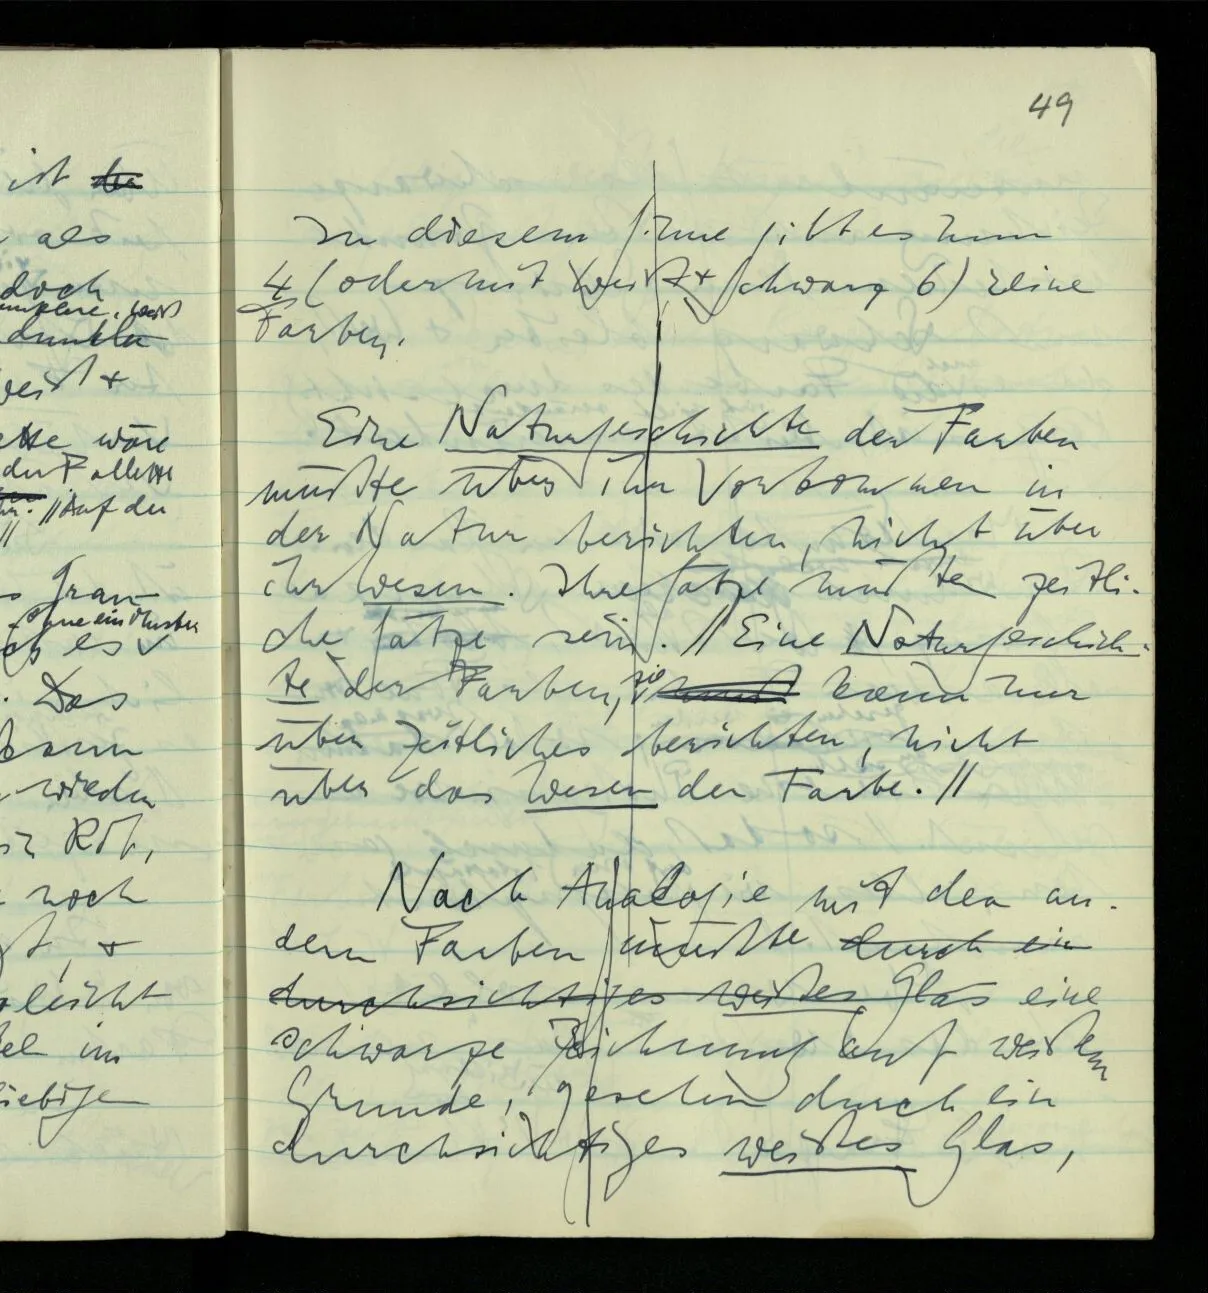 ist der
als
doch
dunkle
weiß +
wäre
der Pallette
// Auf der
//
Grau
ohne ein Muster
es
. Das
kann
wieder
Rot,
noch
, +
leicht
im
49
In diesem Sinne gibt es nun
4 (oder mit Weiß + Schwarz 6) reine
Farben.
Eine Naturgeschichte der Farben
müßte über ihr Vorkommen in
der Natur berichten, nicht über
ihr Wesen. Ihre Sätze müßten zeitli-
che Sätze sein. // Eine Naturgeschich-
te der Farben, sie kann nur
über Zeitliches berichten, nicht
über das Wesen der Farbe. //
Nach Analogie mit den an-
dern Farben müßte durch ein
durchsichtiges weißes Glas eine
schwarze Zeichnung auf weißem
Grunde, gesehen durch ein
durchsichtiges weißes Glas,